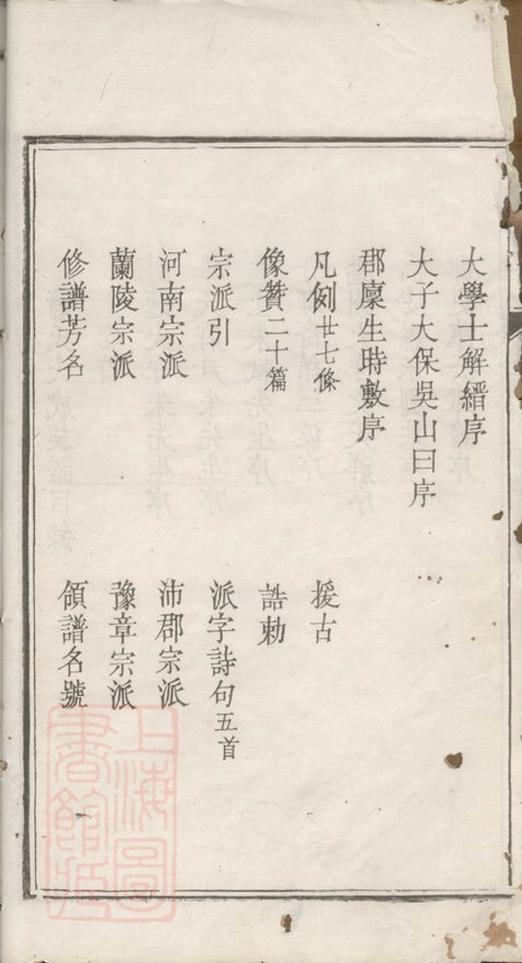 大學士解縉序
大子大保吳山曰序
郡廩生時敷序
凡例廿七條 援古
像贊二十篇 誥勅
宗派引 派字詩句五首
河南宗派 沛郡宗派
蘭陵宗派 豫章宗派
修譜芳名 領譜名號
上海圖書館藏